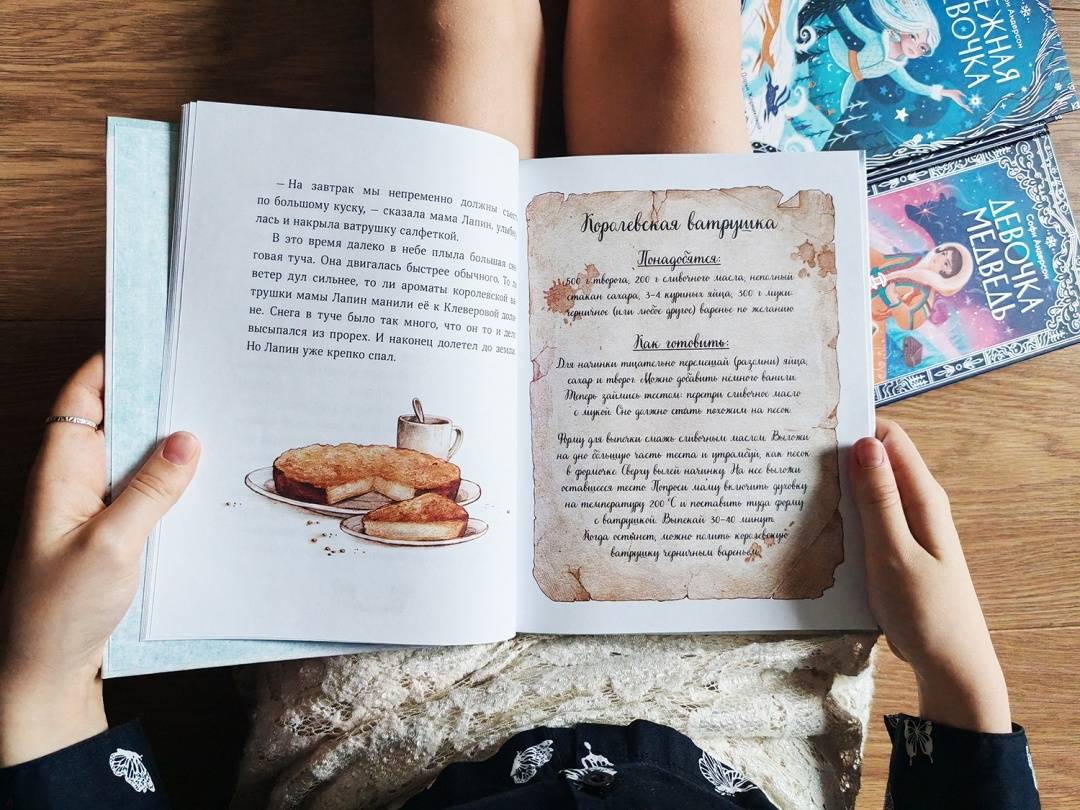 – На завтрак мы непременно должны съесть
по большому куску, – сказала мама Лапин, улыбну
лась и накрыла ватрушку салфеткой.
В это время далеко в небе плыла большая сне
говая туча. Она двигалась быстрее обычного. То ли
ветер дул сильнее, то ли ароматы королевской ва
трушки мамы Лапин манили её к Клеверовой доли
не. Снега в туче было так много, что он то и дело
высыпался из прорех. И наконец долетел до земли.
Но Лапин уже крепко спал.
Королевская ватрушка
Понадобятся:
500 г творога, 200 г сливочного масла, неполный
стакан сахара, 3–4 куриных яйца, 300 г муки
черничное (или любое другое) варенье по желанию
Как готовить:
Для начинки тщательно перемешай (разомни) яйца,
сахар и творог. Можно добавить немного ванили.
Теперь займись тестом: перетри сливочное масло
с мукой. Оно должно стать похожим на песок.
Форму для выпечки смажь сливочным маслом. Выложи
на дно большую часть теста и утрамбуй, как песок
в формочке. Сверху вылей начинку. На нее выложи
оставшееся тесто. Попроси маму включить духовку
на температуру 200 °С и поставить туда форму
с ватрушкой. Выпекай 30–40 минут.
Когда остынет, можно полить королевскую
ватрушку черничным вареньем.
Андерсон
ДЕВОЧКА
Софи Андерсон
ДЕВОЧКА
МЕДВЕДЬ